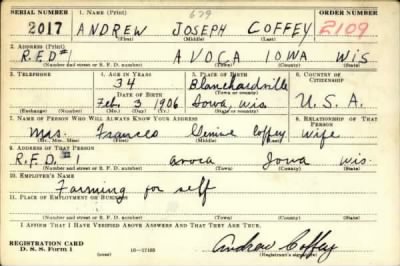 SERIAL NUMBER 1. NAME (Print) 679 ORDER NUMBER
2017 ANDREW JOSEPH COFFEY 2109
(First) (Middle) (Last)
2. ADDRESS (Print)
R.F.D#1 AVOCA IOWA WIS
(Number and street or R. F. D. number) (Town) (County) (State)
3. TELEPHONE 4. AGE IN YEARS 5. PLACE OF BIRTH 6. COUNTRY OF CITIZENSHIP
34 Blanchardville
DATE OF BIRTH (Town or county)
Feb. 3 1906 Iowa, Wis U.S.A.
(Exchange) (Number) (Mo.) (Day) (Yr.) (State or country)
7. NAME OF PERSON WHO WILL ALWAYS KNOW YOUR ADDRESS 8. RELATIONSHIP OF THAT PERSON
Mrs. Frances Coffey Wife
(Mr., Mrs., Miss) (First) (Middle) (Last)
9. ADDRESS OF THAT PERSON
R.F.D. #1 avoca Iowa wis.
(Number and street or R. F. D. number) (Town) (County) (State)
10. EMPLOYER'S NAME
Farming for self
11. PLACE OF EMPLOYMENT OR BUSINESS
(Number and street or R. F. D. number) (Town) (County) (State)
I AFFIRM THAT I HAVE VERIFIED ABOVE ANSWERS AND THAT THEY ARE TRUE.
REGISTRATION CARD
D. S. S. Form 1 (over) 16—17105 Andrew Coffey
(Registrant's signature)